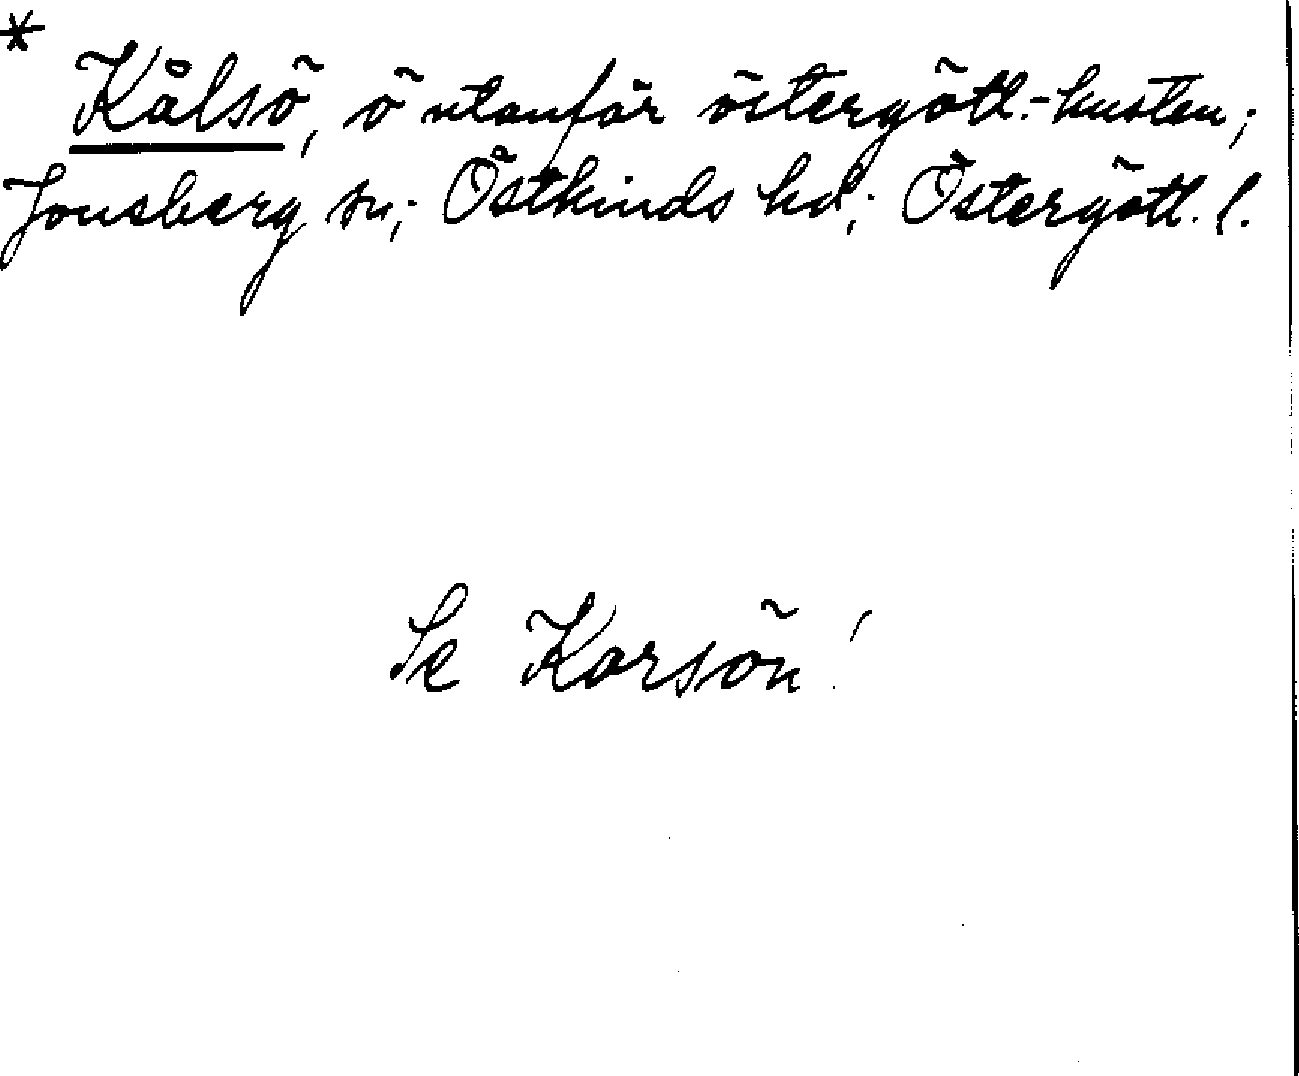 * Kålsö, ö utanför östergötl.-kusten;
Jonsberg sn; Östkinds hd; Östergötl. l.
Se Korsön!